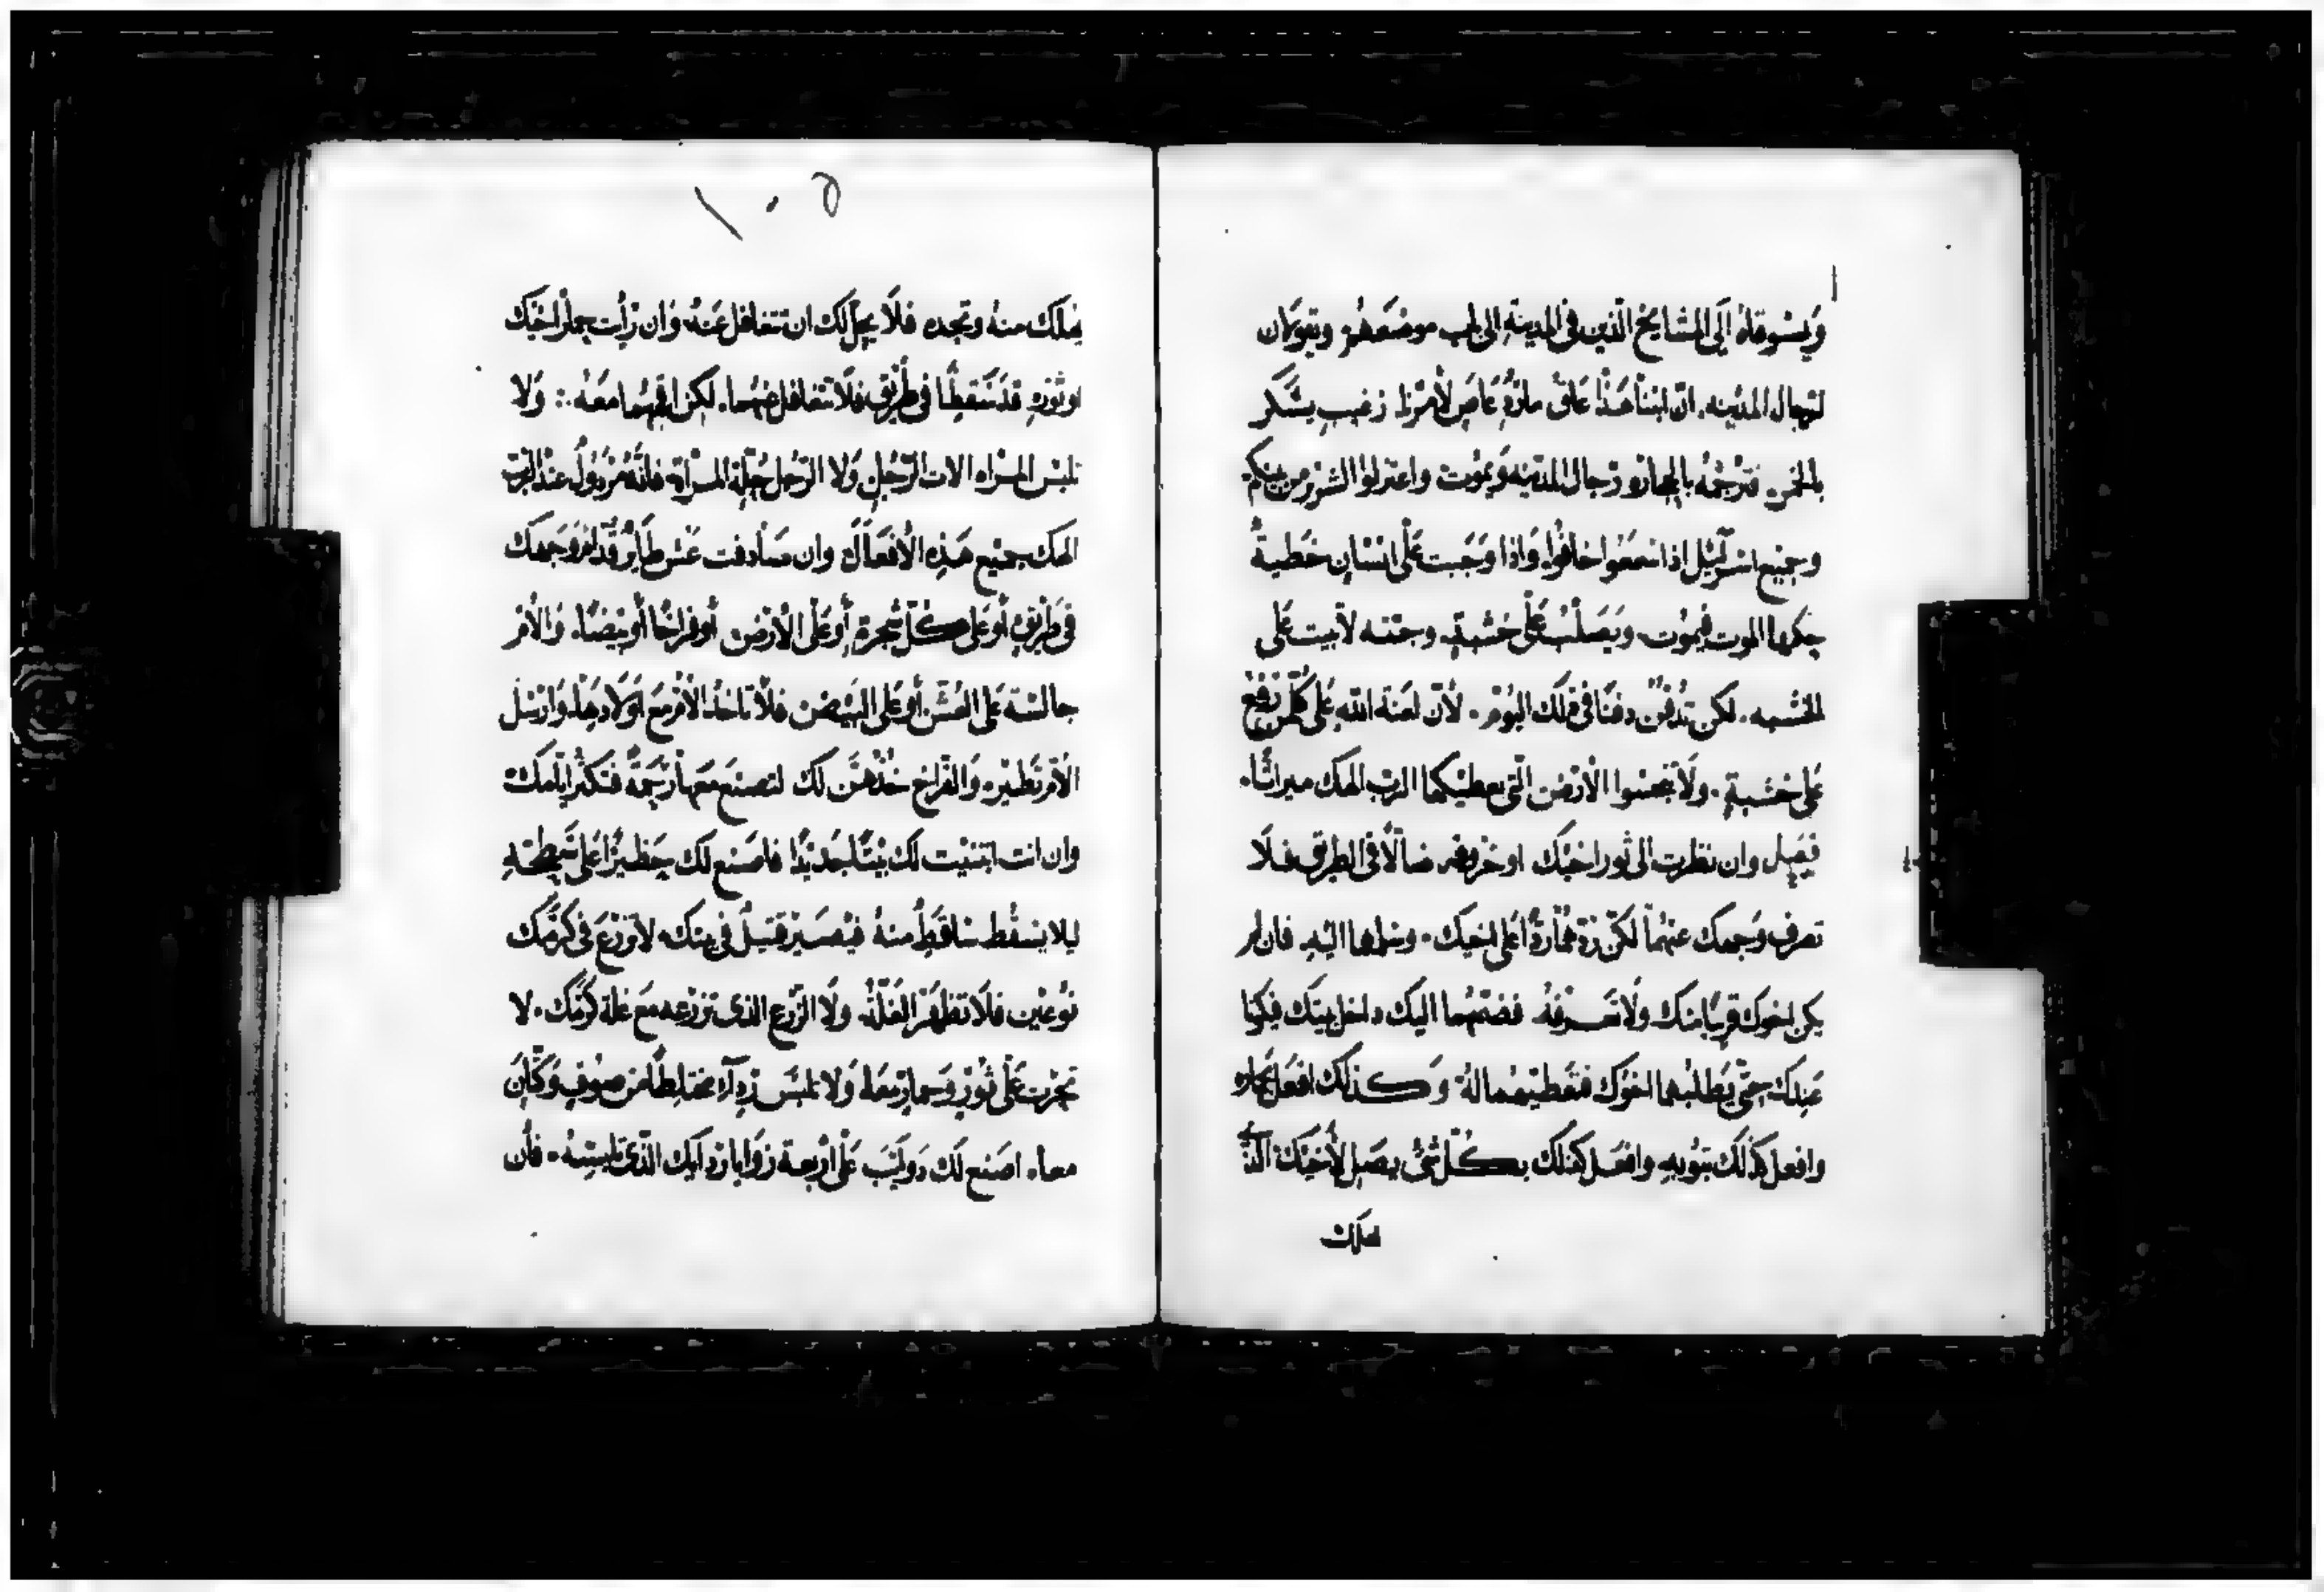 وَيسوقاهُ اِلَى المشَايخ الّذين فى المدينةِ الى باب موضعهُم ويقولان
لرجال المدينه. انّ ابننا هَذا عَاق مارِدٌ عَاصٍ لأمرنا زغيب يسْكر
بالخمر. فترجمُه بالحجارة رجال المدينه وَيموت واعتزلوا الشرير من بينكم
وجميع اسرآئيل اذا سمعَوا خافُوا. وَاذا وَجَبت عَلَى انسَانٍ خطيةٌ
حكمها الموت فيموُت. ويَصَلبُ عَلَى خشبةٍ. وجثته لا تبيت عَلى
الخشبه. لكن تُدفَن دفنًا فى ذلك اليَوم. لأن لعنة الله عَلى كلّ من رفع
عَلى خشبةٍ. ولَا تنجسُوا الأرض الّتى يعطيكها الرب الهك ميراثًا.
فصل وان نظرت الى ثور اخيك او خروفه ضالًا فى الطريق فلَا
تصرف وَجهك عنهُما لكن ردّهُما ردًا عَلى اخيك. وسلمها اليه. فان لم
يكن اخوك قريبًا منك ولَا تعَرفهُ فضمّهُما اليك داخل بيتك فيكونا
عندك حتّى يَطلبُهما اخوك فتعَطيهما لهُ وَكذلك افعَل بحماره
وافعل كذلك بثوبهِ وافعَل كذلك بكُلّ شئ يضل لأخيك الذى
يهلك
١٠٥
يهلك منهُ وتجده فلَا يحل لك ان تتغافل عَنهُ. وَان رَأيت حمارَ اخيك
او ثورَه قد سَقطا فى طريقٍ فلَا تتغافل عنهما. لكن اقمهُما معَهُ. ولا
تلبس المرأه الات الرّجُلِ وَلا الرّجُل حُلة المرأة فانّهُ مرذولٌ عند الرب
الهك جميع هَذِه الأفعَال وان صَادفت عَش طَايرٍ قُدامَ وَجهك
فى طريقٍ أو عَلى كُلّ شجرةٍ أو عَلَى الأرض أو فراخًا أو بَيضًا. وَالأم
جالسَة عَلى العُش أو عَلى البَيض فلَا تاخذ الأم معَ اوَلَادهَا. وَارْسل
الأم تَطير. وَالفراخ خذهنَّ لك لتصنع معَها رَحمةً فتكثر ايامك
وان انت ابتنيْت لك بيتًا جَديدًا فاصَنع لك حَظيرًا عَلى سَطحَهِ
ليلا يسقُط سَاقطٌ منهُ فيصيَر قتيلٌ فى بيتك. لا تزرَع فى كرمك
نوعَين فلَا تظهَر الغَلّة. ولَا الزّرع الذى تزرَعه معَ غلة كرمك. لا
تحرث عَلَى ثورٍ وَحمارٍ معًا وَلا تلبَس ردآء مختلِطًا من صوفٍ وَكتّان
معا. اصَنع لك دَوليَبَ عَلى اربعة زوَايا ردايك الّذى تلبسهُ. فان